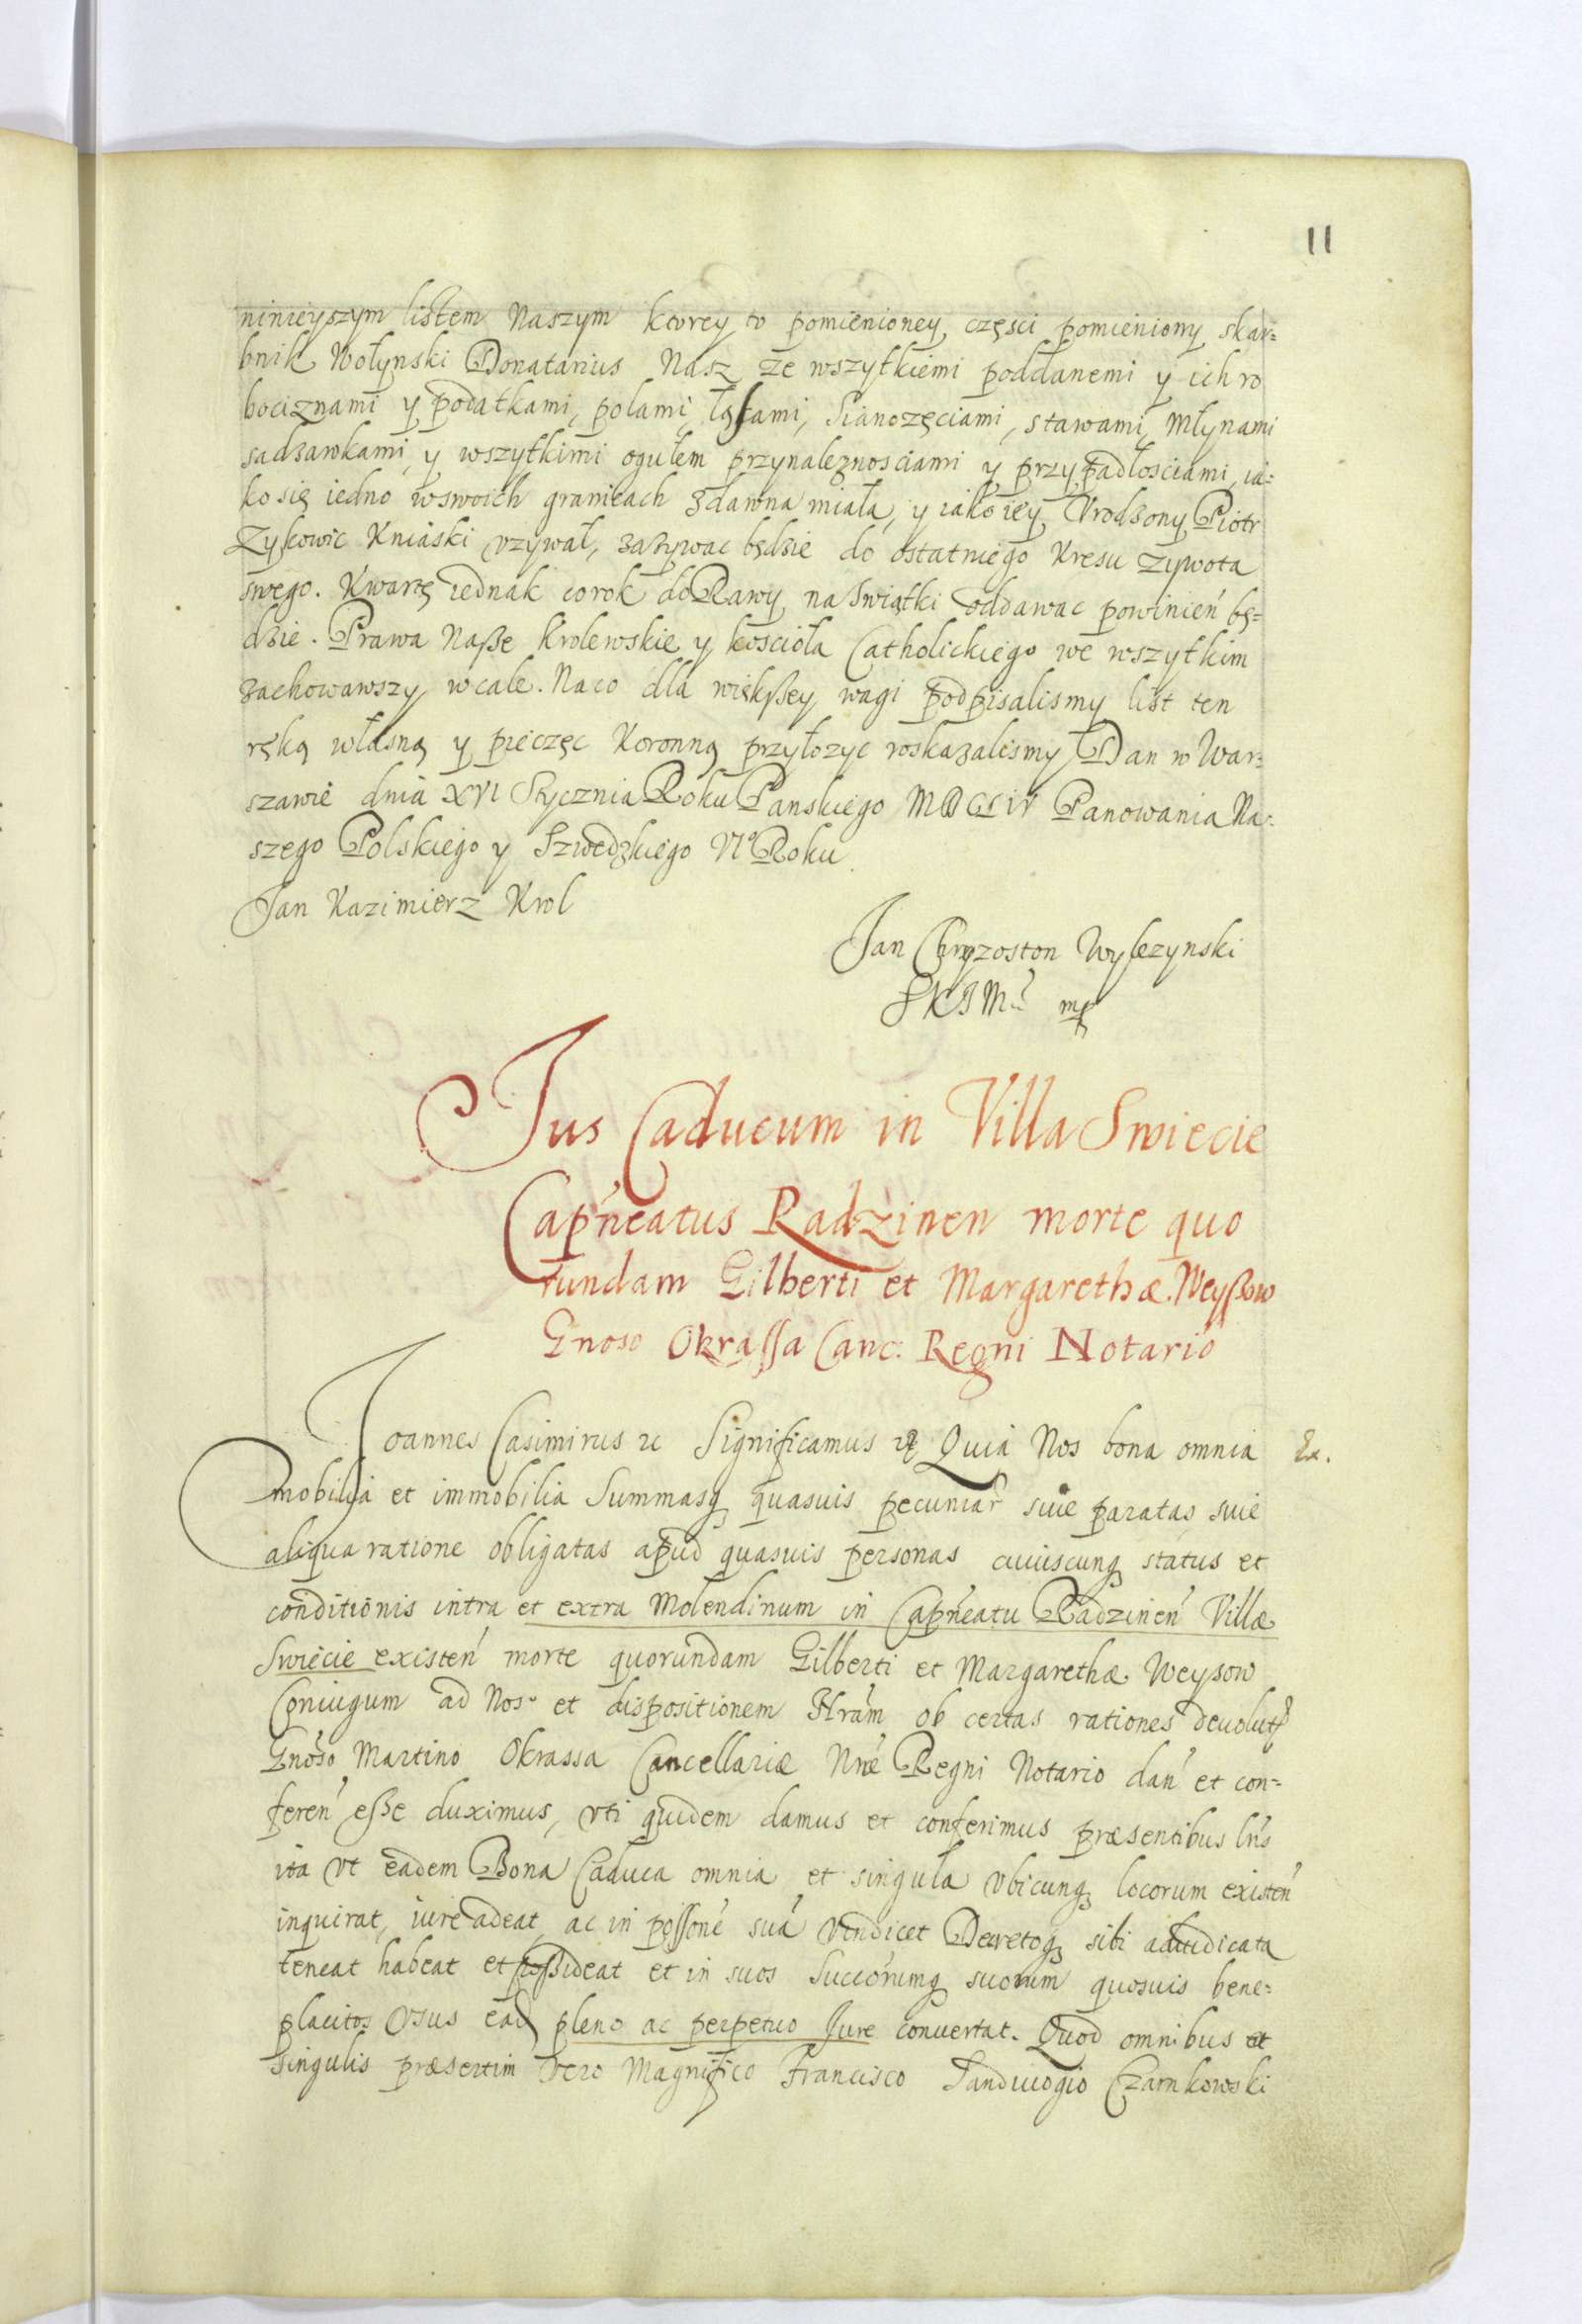 11
ninieyszym listem Naszym ktorey to pomienioney części pomieniony skar=
bnik Wołynski Donatarius Nasz ze wszytkiemi poddanemi y ich ro
bociznami y podatkami, polami, łąkami, Sianozęciami, stawami, Młynami
sadzawkami, y wszytkimi ogułem przynaleznosciami y przypadłosciami, ia=
ko się iedno wswoich granicach zdawna miała, y iako iey Vrodzony Piotr
Zykowic Kniaski vzywał, zazywac będzie do ostatniego Kresu Zywota
swego. Kwartę iednak corok do Rawy na Swiątki oddawac powinień bę=
dzie. Prawa Nasze Krolewskie y koscioła Catholickiego we wszytkim
zachowawszy wcale. Naco dla większey wagi podpisalismy list ten
ręką własną y pieczęc Koronną przyłozyc roskazalismy Dan w War=
szawie dnia XVI Stycznia Roku Panskiego MDCLIV Panowania Na=
szego Polskiego y Szwedzkiego VIº Roku
Jan Kazimierz Krol
Jan Chryzoston Wysczynski
SKJM. mp
Jus Caducum in Villa Swiecie
Capńeatus Radzinen morte quo
rundam Gilberti et Margarethæ Weyßow
Gnoso Okrassa Canc. Regni Notario
Joannes Casimirus &c Significamus &c Quia Nos bona omnia Ex.
mobilia et immobilia Summasq quasuis pecuniar siue paratas, siue
aliqua ratione obligatas apud quasuis personas cuiuscunq status et
conditionis intra et extra Molendinum in Capńeatu Radzineń Villæ
Swiecie existeń morte quorundam Gilberti et Margarethæ Weysow
Coniugum ad Nos et dispositionem Nram ob certas rationes deuoluta
Gnoso Martino Okrassa Cancellariæ Nræ Regni Notario dań et con=
fereń esse duximus, vti quidem damus et conferimus præsentibus lris
ita vt eadem Bona Caduca omnia et singula vbicunq locorum existeń
inquirat, iure adeat, ac in possone sua vindicet Decretoq sibi adiudicata
teneat habeat et possideat et in suos Succorumq suorum quosuis bene=
placitos Vsus ead pleno ac perpetuo Jure conuertat. Quod omnibus et
singulis præsertim vero Magnifico Francisco Sandiuogio Czarnkowski